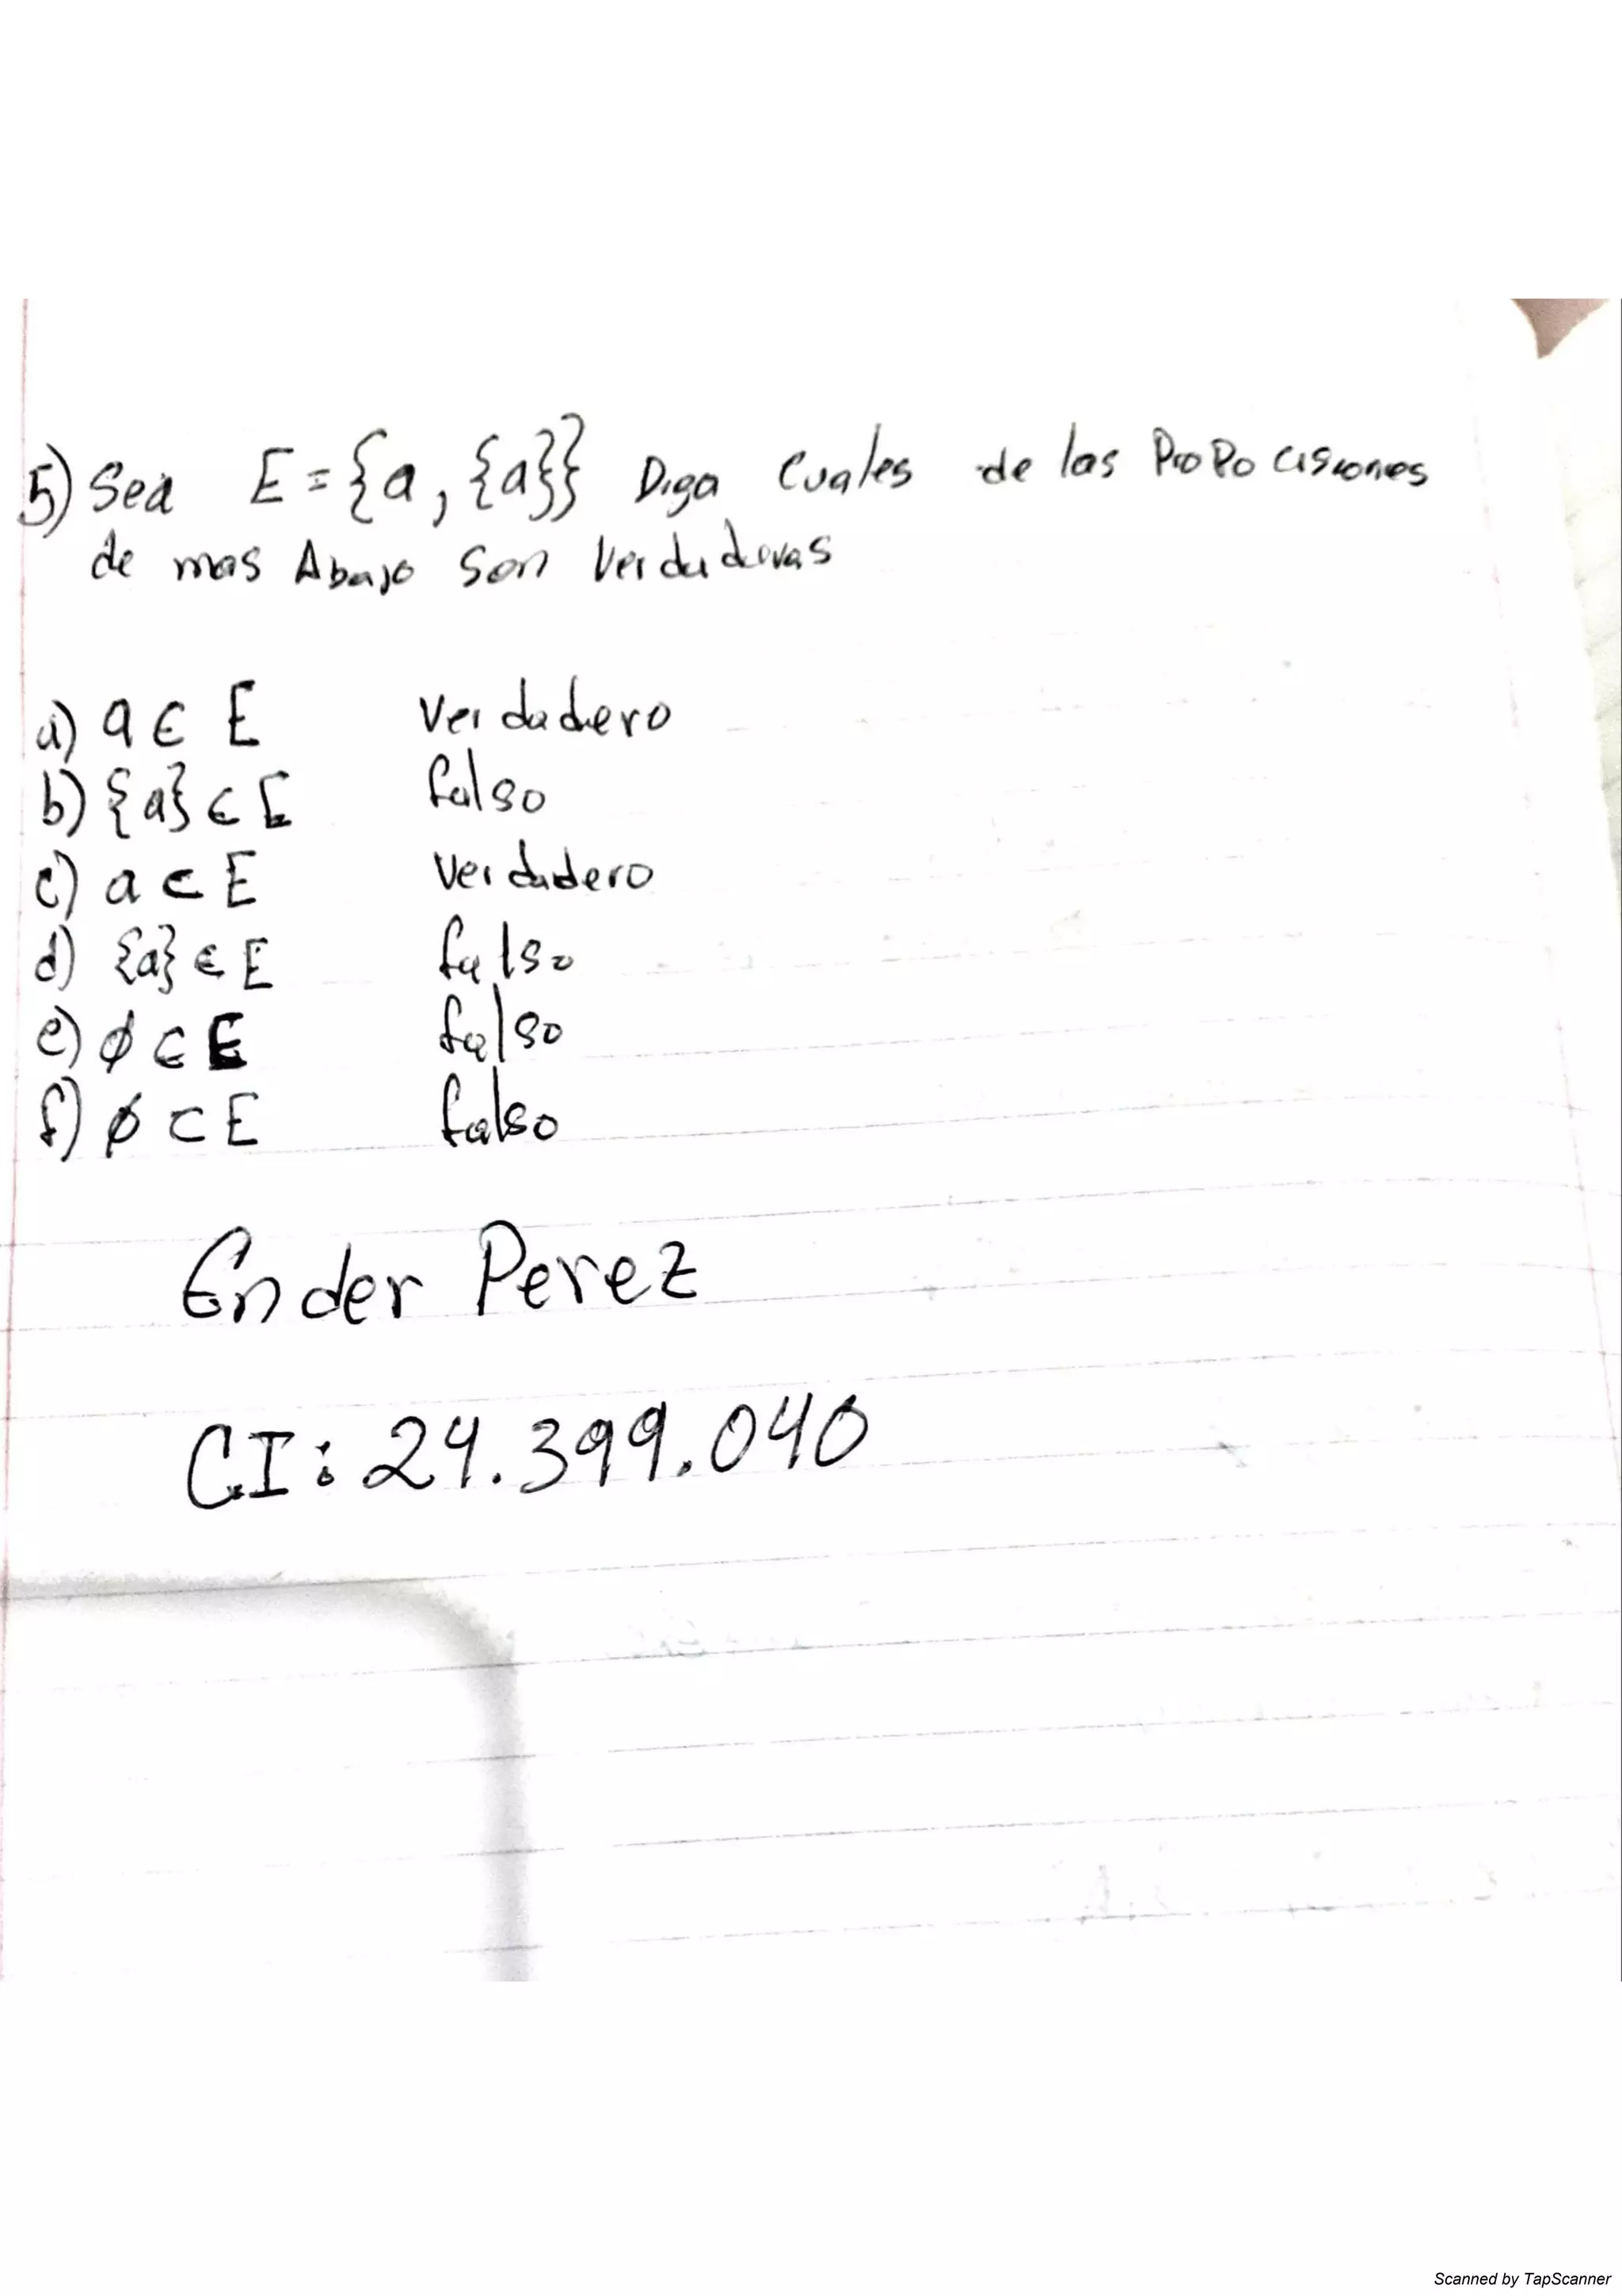 5) Sea E = {a, {a}} Diga Cuales de las ProPocisiones
de mas Abajo Son Verdaderas
a) a ∈ E Verdadero
b) {a} ∈ E falso
c) a ⊂ E Verdadero
d) {a} ∈ E falso
e) ∅ ∈ E falso
f) ∅ ⊂ E falso
Ender Perez
CI: 24.399.040
Scanned by TapScanner